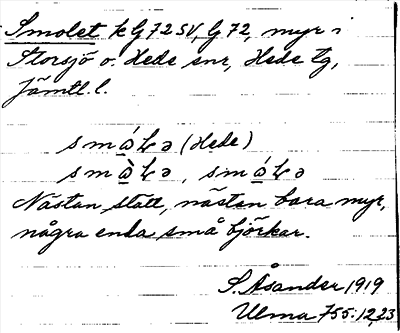 Smolet k G 72 SV, G 72, myr i
Storsjö o. Hede snr, Hede tg,
Jämtl. l.
(Hede)
Nästan slätt, nästan bara myr,
några enda små björkar.
S. Åsander 1919
Ulma 755:12,23